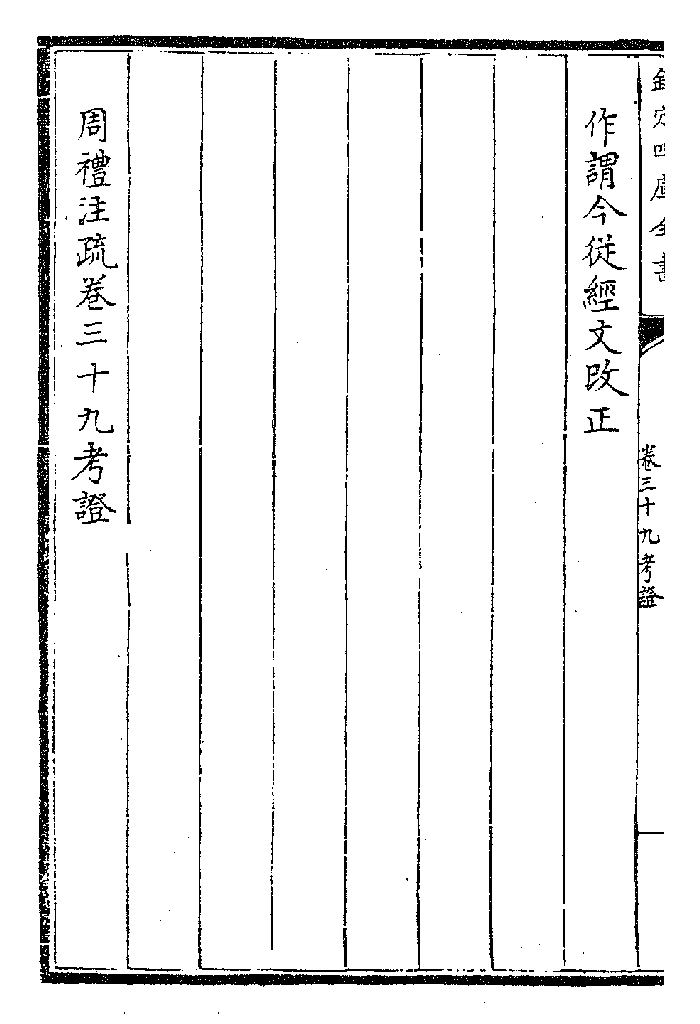 欽定四庫全書
卷三十九考證
作謂今從經文改正
周禮注疏卷三十九考證